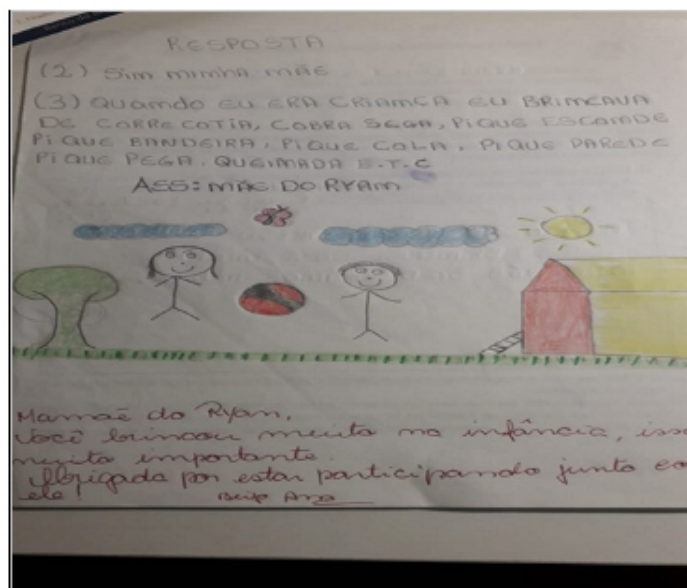 RESPOSTA
(2) Sim minha mãe
(3) Quando eu era criamça eu brimcava
de corre cotia, cobra sega, pique escomde
pique bandeira, pique cola, pique parede
pique pega, queimada E.T.C
ASS: mãe do Ryam
Mamãe do Ryan,
Você brincou muito na infância, iss
muito importante.
Obrigada por estar participando junto co
ele!
Beijo Ana